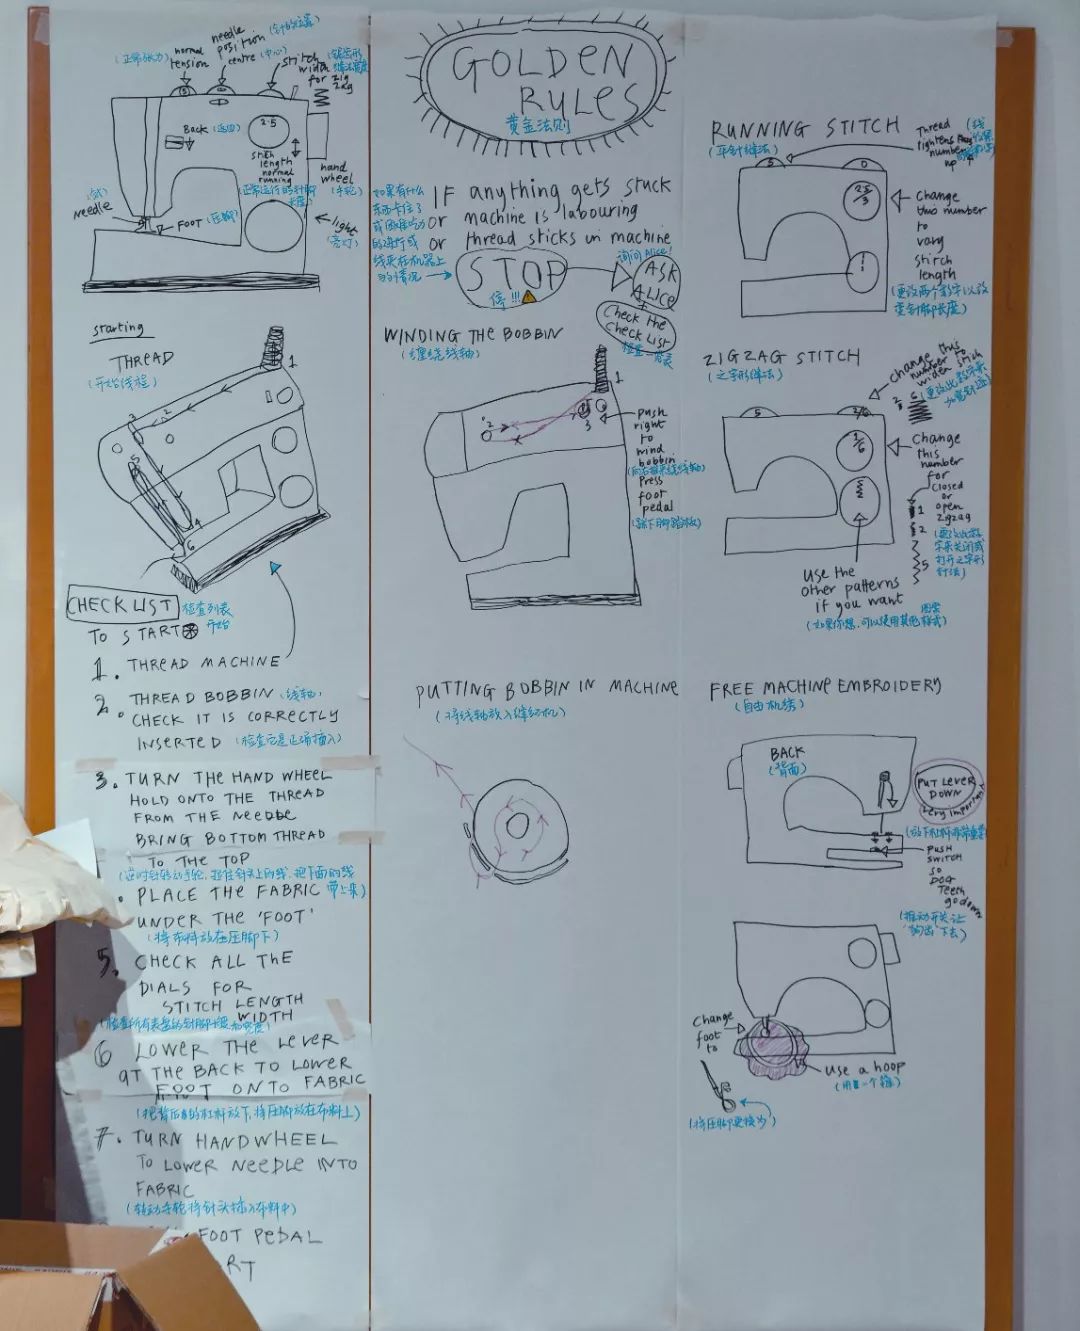 normal
tension
(正常张力)
needle
position
centre (中心)
stitch
width
for zig
zag
Back (返回)
2.5
stitch
length
normal
running
hand
wheel
(手轮)
(针)
needle
FOOT (压脚)
light
starting
THREAD
(开始线程)
1
2
3
4
5
6
CHECKLIST
检查列表
TO START
开始
1. THREAD MACHINE
2. THREAD BOBBIN (线轴)
CHECK IT IS CORRECTLY
INSERTED (检查它是正确插入)
3. TURN THE HAND WHEEL
HOLD ONTO THE THREAD
FROM THE NEEDLE
BRING BOTTOM THREAD
TO THE TOP
PLACE THE FABRIC
UNDER THE 'FOOT'
(将布料放在压脚下)
5. CHECK ALL THE
DIALS FOR
STITCH LENGTH
WIDTH
6 LOWER THE LEVER
AT THE BACK TO LOWER
FOOT ONTO FABRIC
(把背后的杠杆放下,将压脚放在布料上)
7. TURN HANDWHEEL
TO LOWER NEEDLE INTO
FABRIC
(转动手轮将针头插入布料中)
FOOT PEDAL
GOLDEN
RULES
黄金法则
IF anything gets stuck
or machine is labouring
or thread sticks in machine
如果有什么
东西卡住了
STOP
停!!!
询问Alice!
ASK
ALICE
Check the
Check List
WINDING THE BOBBIN
(缠绕线轴)
1
2
3
push
right
to
wind
bobbin
Press
foot
pedal
(踩下脚踏板)
PUTTING BOBBIN IN MACHINE
(将线轴放入缝纫机)
RUNNING STITCH
(平针缝法)
Thread
tightens
number
up
5
0
Change
this number
to
vary
stitch
length
(更改两个数字以改
变针脚长度)
ZIGZAG STITCH
(之字形缝法)
Change this
number to
widen stich
5
2/6
1/6
Change
this
number
for
closed
or
open
zigzag
1
2
5
use the
other patterns
if you want
(如果你想,可以使用其他样式)
图案
FREE MACHINE EMBROIDERY
(自由机绣)
BACK
(背面)
PUT LEVER
DOWN
very important
PUSH
SWITCH
so
DOG
Teeth
go down
(推动开关让
Change
foot
to
use a hoop
(将压脚更换为)